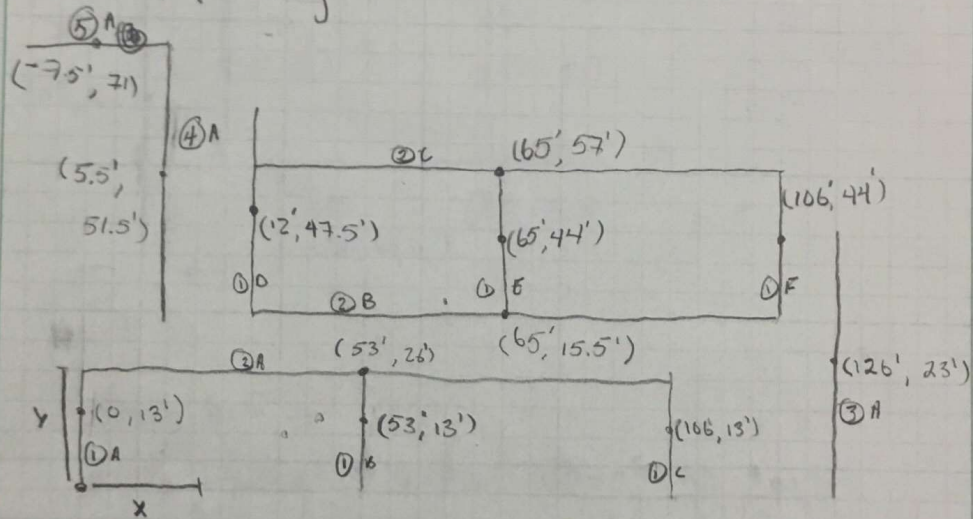 ⑤ A
(-7.5', 71)
④ A
(5.5',
51.5')
② C
(65', 57')
(106', 44')
(12', 47.5')
(65', 44')
① D
② B
① E
① F
(65', 15.5')
(53', 26')
② A
(126', 23')
③ A
y
(0, 13')
(53', 13')
(106, 13')
① A
① B
① C
x